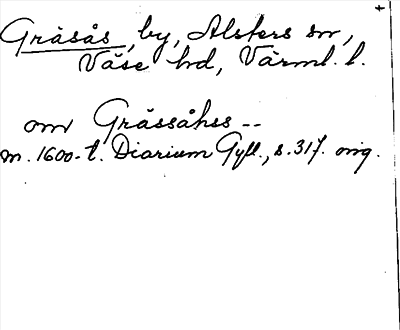 Gräsås, by, Alsters sn,
Väse hd, Värml. l.
om Grässåhss --
m. 1600-t. Diarium Gyll., s. 317. orig.